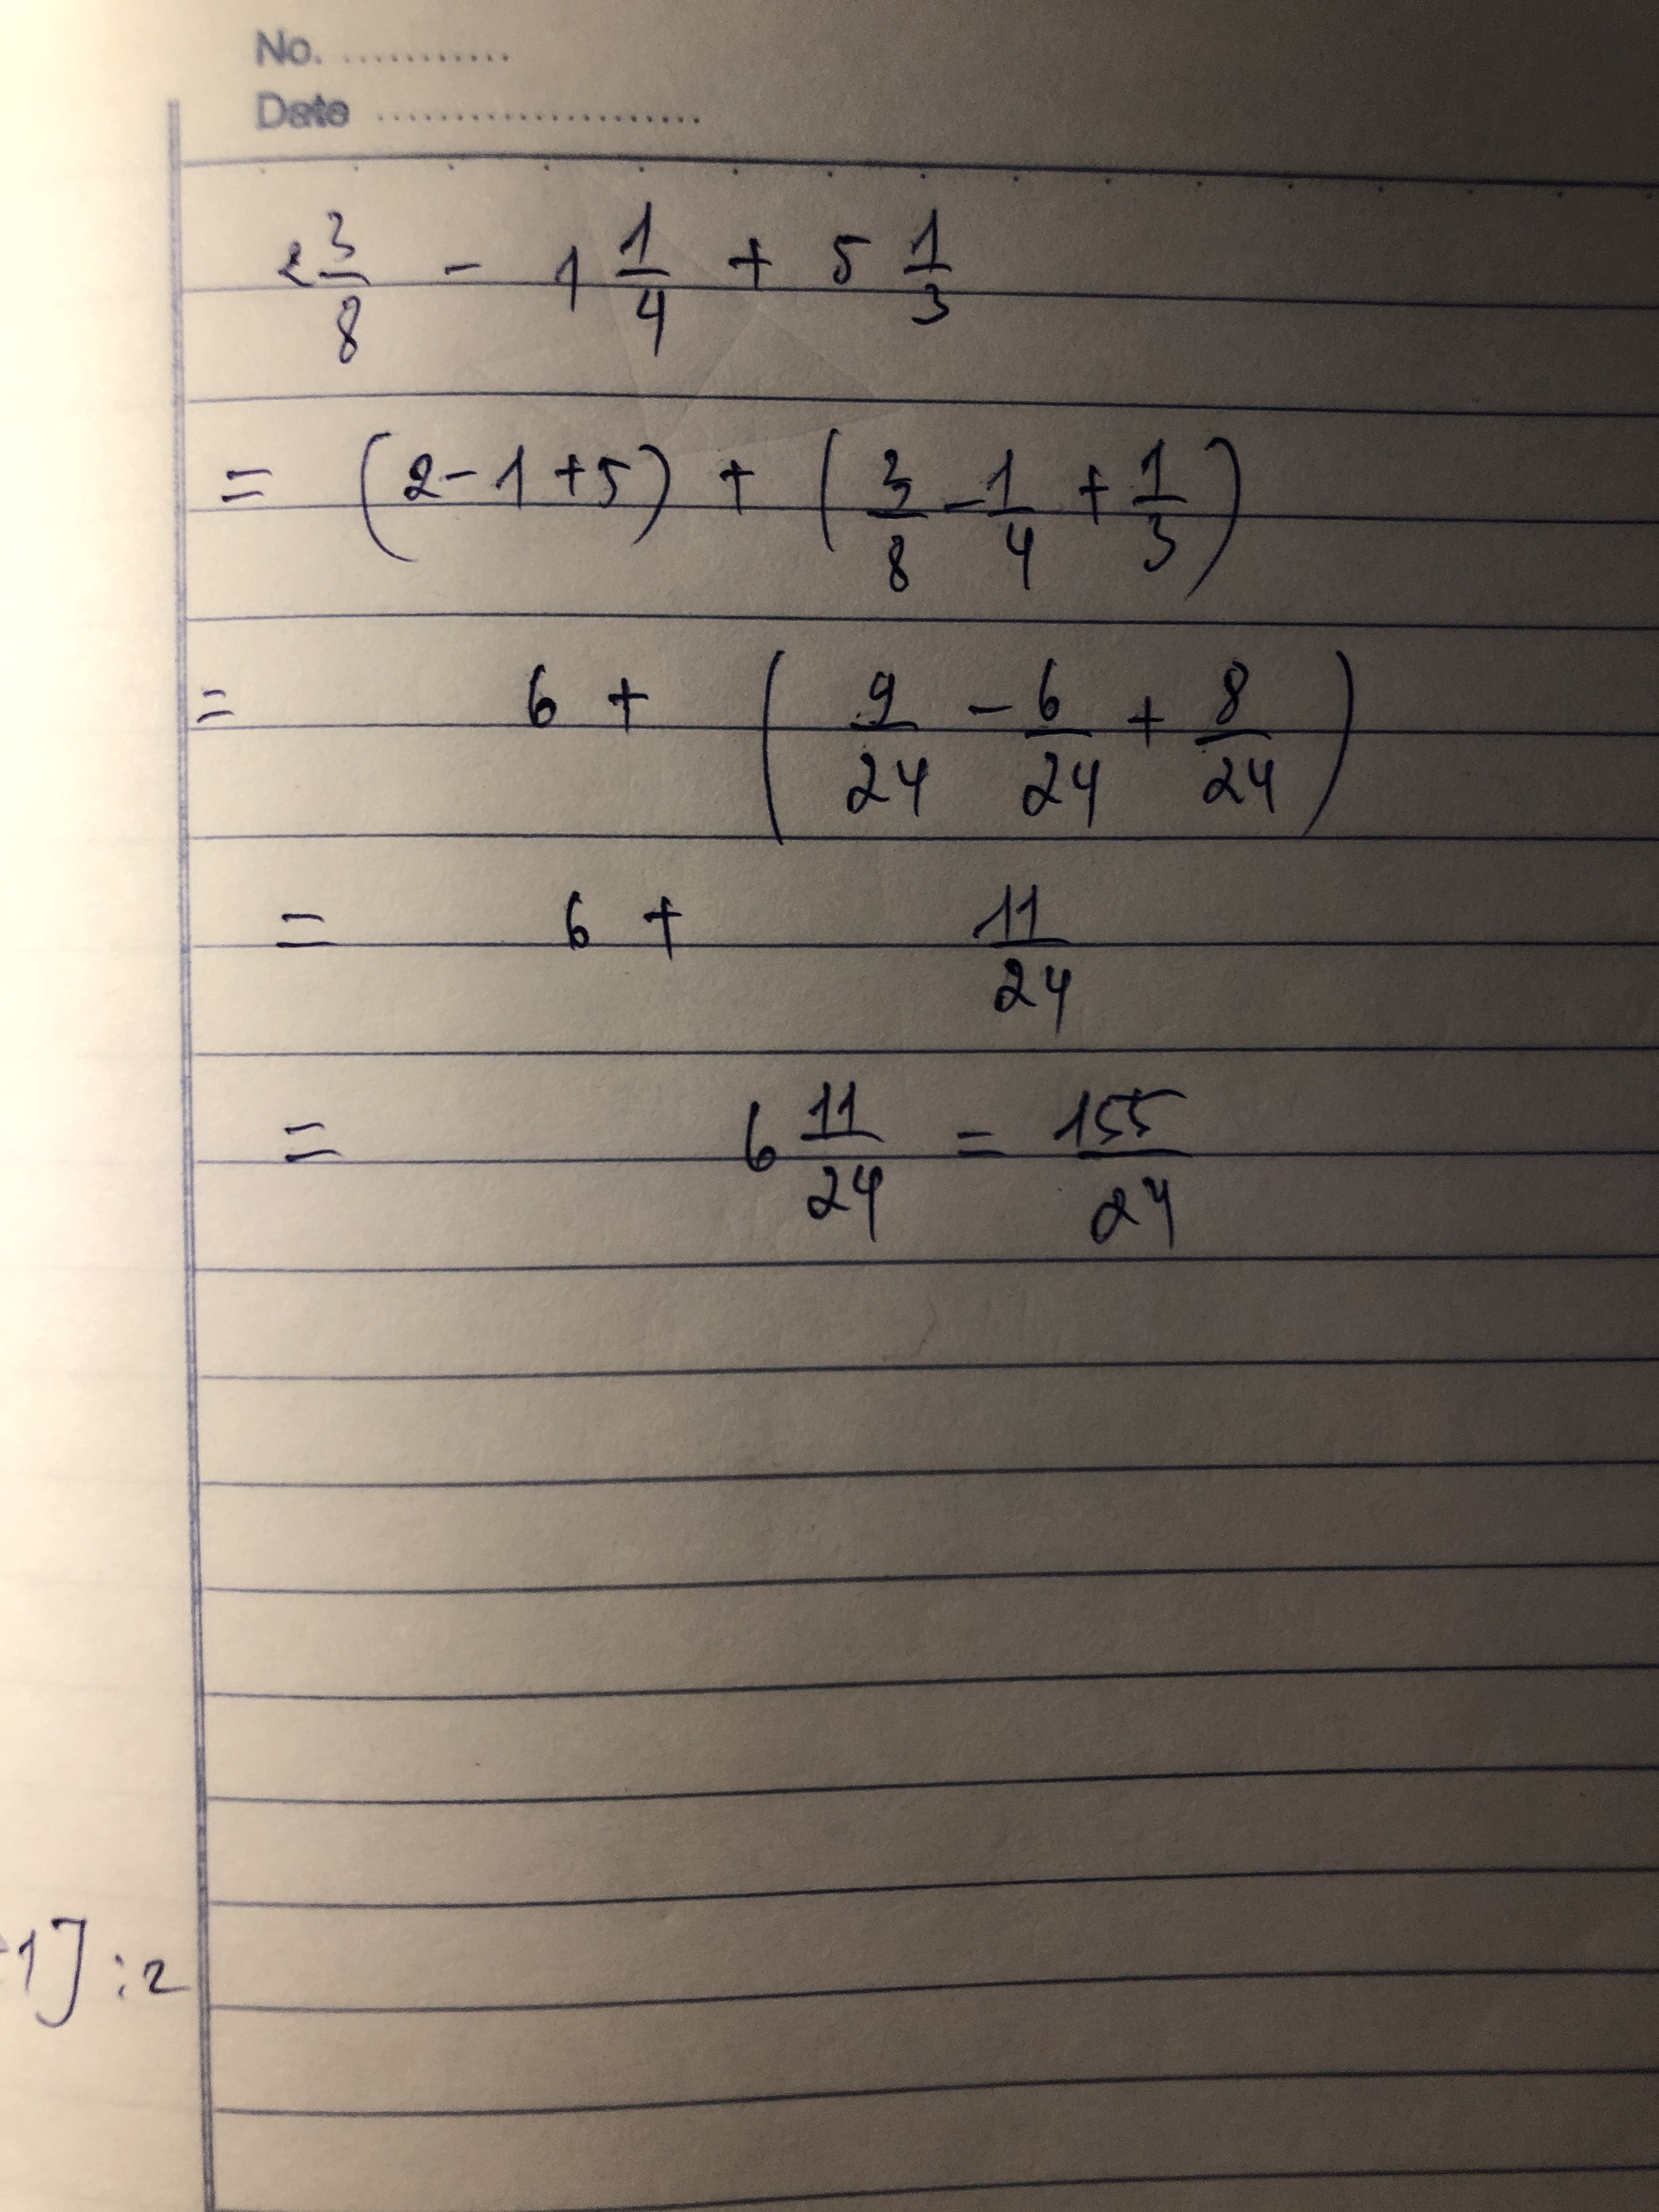 No. ...........
Date ......................
2 3/8 - 1 1/4 + 5 1/3
= (2-1+5) + (3/8 - 1/4 + 1/3)
= 6 + (9/24 - 6/24 + 8/24)
= 6 + 11/24
= 6 11/24 = 155/24
1] : 2